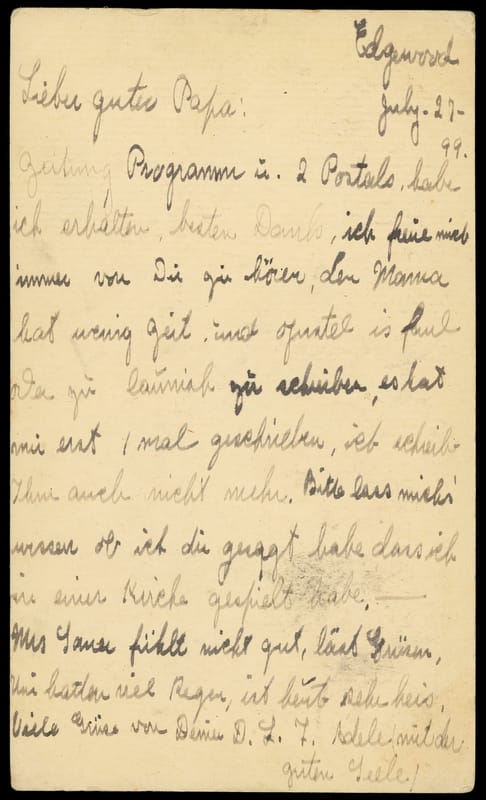 Edgewood
July - 27 -
99.
Lieber guter Papa:
Zeitung Programm u. 2 Postals, habe
ich erhalten, besten Dank, ich freue mich
immer von Dir zu hören, den Mama
hat wenig Zeit, und is faul
oder zu launish zu schreiben, es hat
mir erst 1 mal geschrieben, ich schreib
Ihm auch nicht mehr. Bitte lass mich
wissen ob ich dir gesagt habe dass ich
in einer Kirche gespielt habe. —
Mrs fühlt nicht gut, läst Grüsen,
Wir hatten viel Regen, ist heut sehr heis.
Viele Grüse von Deiner D. L. T. Adele (mit der
guten Seele)